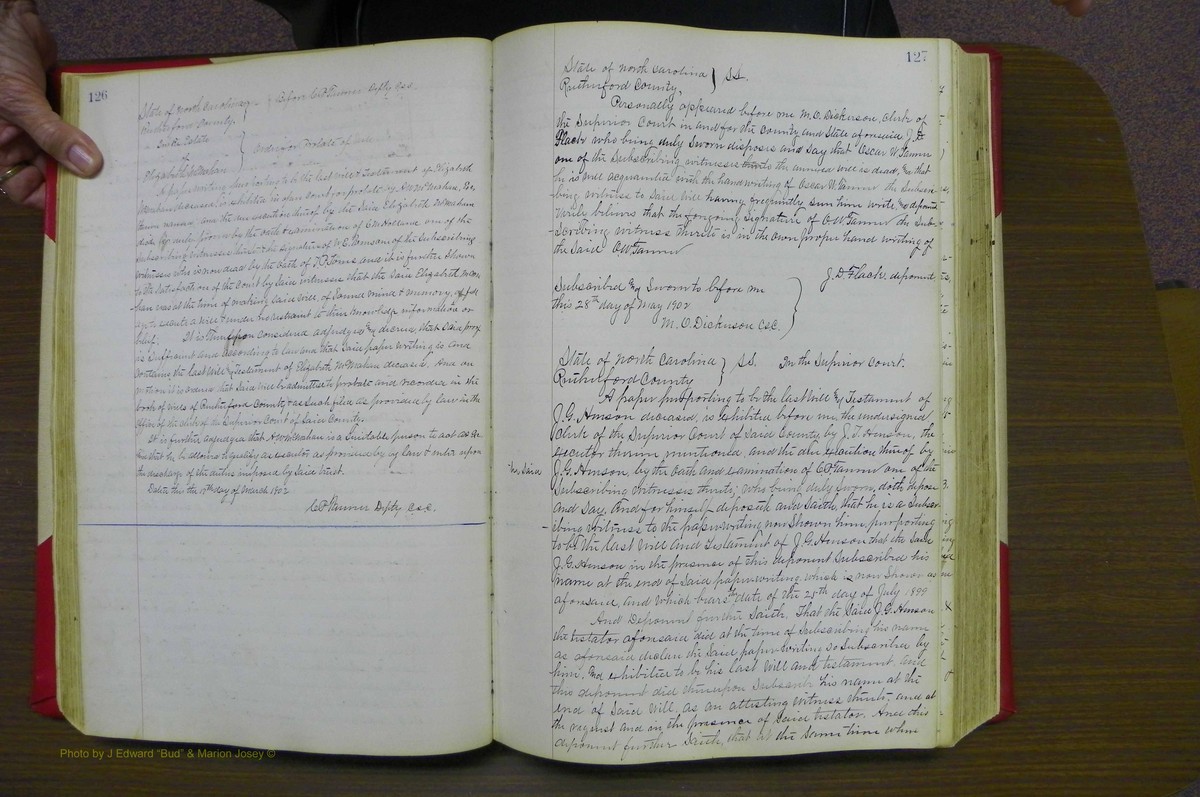 126
State of North Carolina } Before C P Turner Depty CSC
Rutherford County.
In the Estate
of
Elizabeth McMahan } Order of Probate of Will
A paper writing purporting to be the last will & testament of Elizabeth
McMahan deceased, is exhibited in open court for probate by A W McMahan, Ex.
and the due execution thereof by the said Elizabeth McMahan
duly proven by the oath & examination of one of the
subscribing witnesses thereto & the signature of of the subscribing
witnesses who is now dead by the oath of and it is further shown
to the satisfaction of the Court by said witnesses that the said Elizabeth McMa-
han was at the time of making said will, of sound mind & memory, of full
age to execute a will & under no restraint to their knowledge information or
belief. It is Thereupon considered adjudged & decreed, that said proof
is sufficient and according to law and that said paper writing is and
contains the last will & testament of Elizabeth McMahan deceased. And on
motion it is ordered that said will be admitted to probate and recorded in the
book of wills of Rutherford County & as such filed as provided by law in the
office of the clerk of the Superior Court of said County.
It is further adjudged that A W McMahan is a suitable person to act as Ex.
& that he be allowed to qualify as executor as provided by law & enter upon
the discharge of the duties imposed by said trust.
Dated this the 17th day of March 1902
C P Turner Depty C.S.C.
127
State of North Carolina } SS.
Rutherford County,
Personally appeared before me M. O. Dickerson, Clerk of
the Superior Court in and for the County and State aforesaid, J. D.
Flack who being duly sworn disposes and say that Oscar W. Tanner
one of the subscribing witnesses thereto the annexed will is dead, & that
he is well acquainted with the handwriting of Oscar W. Tanner the subscri-
bing witness to said will having frequently seen him write, & deponent
verily believes that the foregoing signature of O W Tanner the sub-
-scribing witness thereto is in the own proper hand writing of
the said O W Tanner
J. D. Flack, deponent
Subscribed & Sworn to before me
this 28th day of May 1902
M. O. Dickerson CSC.
State of North Carolina } SS. In the Superior Court.
Rutherford County
A paper purporting to be the last Will & Testament of
J. G. Hinson deceased, is exhibited before me, the undersigned
clerk of the Superior Court of said County, by J. T. Hinson, the
executor therein mentioned, and the due execution thereof by
J. G. Hinson, by the oath and examination of one of the
subscribing witnesses thereto; who being duly sworn, doth depose
and say, And for himself deposeth and saith, that he is a subscri-
-bing witness to the paper writing now shown him, purporting
to be the last Will and Testament of J. G. Hinson that the said
J. G. Hinson in the presence of this deponent subscribed his
name at the end of said paper writing which is now shown as
aforesaid, and which bears date of the 25th day of July 1899
And Deponent further saith, That the said J. G. Hinson
the testator aforesaid did at the time of subscribing his name
as aforesaid declare the said paper writing so subscribed by
him, and exhibited to be his last will and testament, and
this deponent did thereupon subscribe his name at the
end of said will, as an attesting witness thereto, and at
the request and in the presence of said testator. And this
deponent further saith, that at the same time when
Photo by J Edward "Bud" & Marion Josey ©